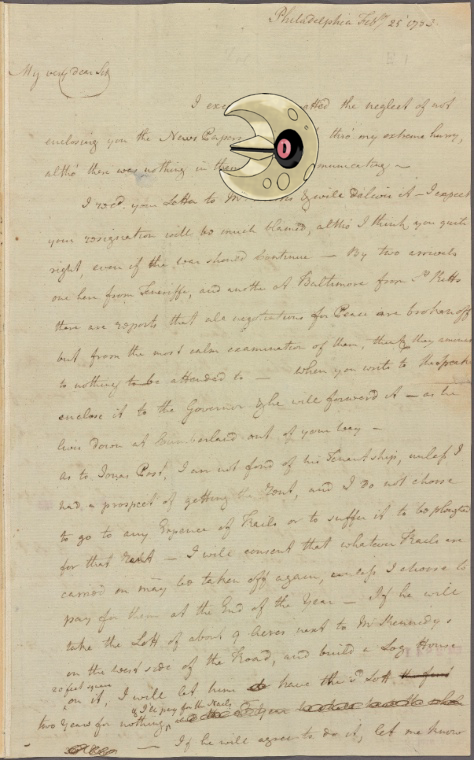 Philadelphia Feby. 25 1783.
My very Dear Sir
I the neglect of not
enclosing you the News Papers thro' my extreme hurry,
altho' there was nothing in them
I recd your Letter to Mr & will deliver it — I expect
your resignation will be much blamed, altho I think you quite
right even if the war should continue — By two arrivals
one here from Teneriffe, and another at Baltimore from St Kitts
there are reports that all negotiations for Peace are broken off
but from the most calm examination of them, they amount
to nothing to be attended to — When you write to the Speaker
enclose it to the Governor & he will forward it — as he
lives down at Cumberland out of your way —
as to Jonas Post, I am not fond of his Tenantship, unless I
had a prospect of getting Rent, and I do not choose
to go to any Expence of Rails or to suffer it to be ploughed
for that Rent — I will consent that whatever Rails are
carried on may be taken off again, unless I choose to
pay for them at the End of the Year — If he will
take the Lott of about 9 Acres next to Mr Kennedy's
on the west side of the Road, and build a Log House
20 feet square
on it, I will let him have the Sd Lott
& I to pay for the Nails
two Years for nothing,
— If he will agree to do it, let me know